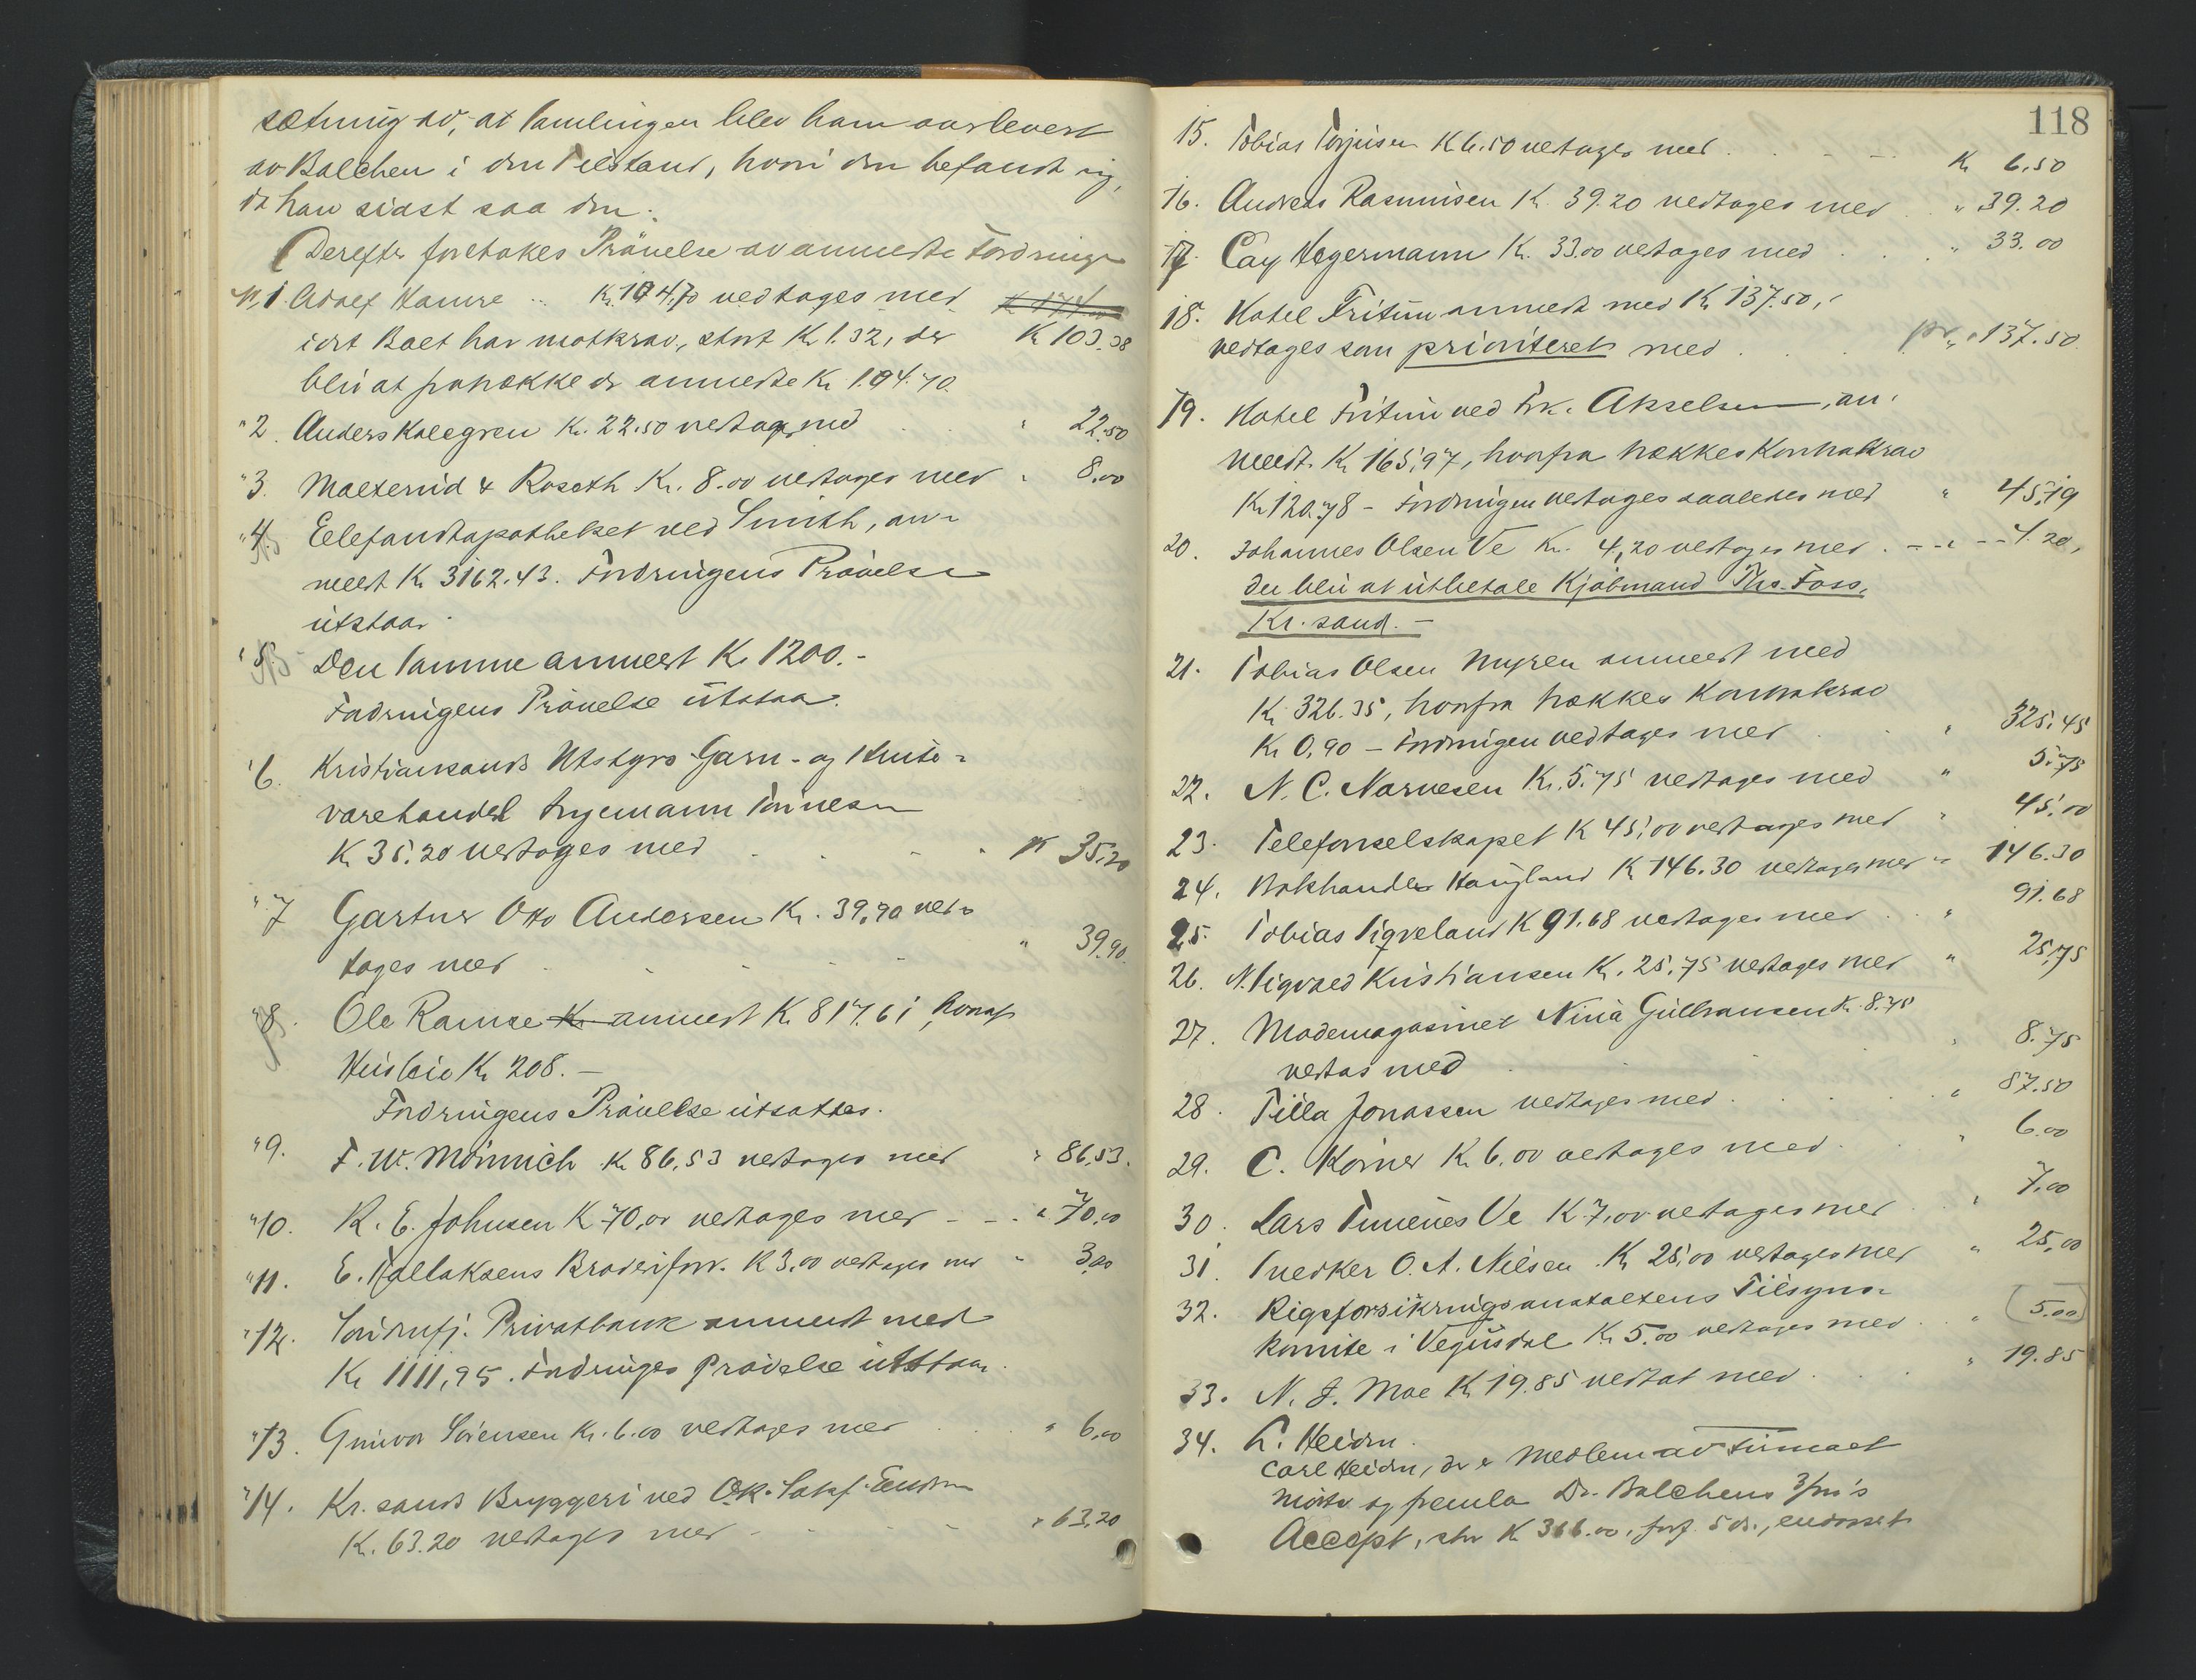 sætning av, at samlingen blev ham overlevert
av Balchen i den Tilstand, hvori den befandt sig,
da han sidst saa den.
Derefter foretokes Prövelse av anmeldte Fordringer
N. 1. Adolf Hamre .. Kr. 104,70 vedtages med
idet Boet har motkrav, stort Kr 1.32, der Kr 103.38
blir at fratrække de anmeldte Kr 104.70.
" 2. Anders Kollgren Kr. 22.50 vedtages med " 22.50
" 3. & Roseth Kr. 8.00 vedtages med " 8.00
" 4. Elefantapotheket ved Smith, an-
meldt Kr 3162.43. Fordringens Prövelse
utstaar.
" 5. Den samme anmeldt Kr 1200.-
Fordringens Prövelse utstaar.
" 6. Kristiansands Utstyrs Garn- og Hvite-
varehandel Ingemann Tönnesen
Kr 35.20 vedtages med Kr 35.20
" 7 Gartner Otto Andersen Kr. 39,90 ved-
tages med " 39.90.
" 8. Ole Ramse Kr anmeldt Kr 817.61, hvorav
Husleie Kr 208.-
Fordringens Prövelse utsattes.
" 9. F. W. Mönnich Kr 86,53 vedtages med " 86,53.
" 10. K. E. Johnsen Kr 70,00 vedtages med - - . " 70,00
" 11. E. Tallaksens Broderiforr. Kr 3,00 vedtages med " 3,00
" 12. Söndenfj. Privatbank anmeldt med
Kr 1111,95. Fordringens Prövelse utstaar.
" 13. Gunvor Sörensen Kr. 6.00 vedtages med " 6,00
" 14. Kr.sands Bryggeri ved O.r.Sakf.
Kr. 63.20 vedtages med " 63,20
118
15. Tobias Torjusen Kr 6.50 vedtages med Kr 6,50
16. Andreas Rasmusen Kr. 39.20 vedtages med " 39.20
17. Cay Hegermann Kr. 33.00 vedtages med " 33.00
18. Hotel Fritun anmeldt med Kr 137.50,
vedtages som prioriteret med pr. " 137.50
19. Hotel Fritun ved Frk. Akselsen, an-
meldt Kr 165,97, hvorfra trækkes Kontrakrav
Kr 120.78 - Fordringen vedtages saaledes med " 45,19
20. Johannes Olsen Ve Kr. 4,20 vedtages med . - - - 4.20,
der blir at utbetale Kjöbmand Ths. Foss,
Kr.sand. -
21. Tobias Olsen Myren anmeldt med
Kr 326.35, hvorfra trækkes Kontrakrav
Kr 0,90 - Fordringen vedtages med " 325.45
22. N. C. Narvesen Kr. 5.75 vedtages med " 5.75
23. Telefonselskapet Kr 45,00 vedtages med " 45.00
24. Bokhandler Haugland Kr 146.30 vedtages med " 146.30
25. Tobias Tigveland Kr 91.68 vedtages med " 91.68
26. N. Sigvald Kristiansen Kr. 25,75 vedtages med " 25,75
27. Modemagasinet Nina Gulbransen Kr. 8.75
vedtas med " 8.75
28. Tilla Jonassen vedtages med " 87.50
29. C. Körner Kr 6,00 vedtages med " 6.00
30. Lars Ve Kr 7,00 vedtages med " 7,00
31. Snedker O. A. Nilsen Kr 25,00 vedtages med " 25,00
32. Rigsforsikringsanstaltens Tilsyns-
komite i Vegusdal Kr 5.00 vedtages med " 5.00
33. N. J. Moe Kr 19.85 vedtat med " 19.85
34. L. Heidn
Carl Heidn, der er Medlem av Firmaet
mötte og fremla Dr. Balchens 3/m's
Accept, stor Kr 366.00, forf. 5 ds., endosset